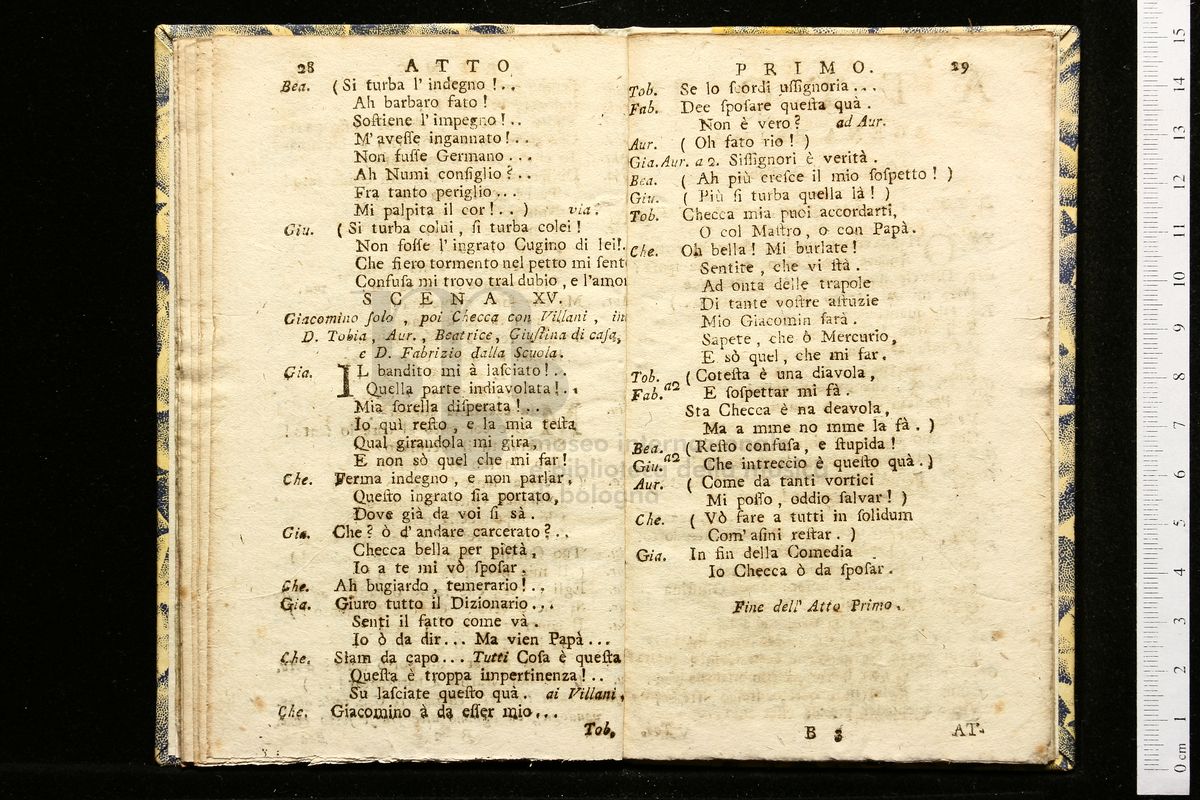 28 ATTO
Bea. (Si turba l' indegno!..
Ah barbaro fato!
Soſtiene l' impegno!..
M' aveſſe ingannato!..
Non fuſſe Germano...
Ah Numi conſiglio?..
Fra tanto periglio...
Mi palpita il cor!..) via.
Giu. (Si turba colui, ſi turba colei!
Non foſſe l' ingrato Cugino di lei!.
Che fiero tormento nel petto mi ſent
Confuſa mi trovo tral dubio, e l'amor
SCENA XV.
Giacomino ſolo, poi Checca con Villani, in
D. Tobia, Aur., Beatrice, Giuſtina di caſa,
e D. Fabrizio dalla Scuola.
Gia. IL bandito mi à laſciato!..
Quella parte indiavolata!..
Mia ſorella diſperata!..
Io quì reſto, e la mia teſta
Qual girandola mi gira,
E non sò quel che mi far!
Che. Ferma indegno, e non parlar,
Queſto ingrato ſia portato,
Dove già da voi ſi sà.
Gia. Che? ò d' andare carcerato?..
Checca bella per pietà,
Io a te mi vò ſpoſar.
Che. Ah bugiardo, temerario!..
Gia. Giuro tutto il Dizionario...
Senti il fatto come và.
Io ò da dir... Ma vien Papà...
Che. Siam da capo... Tutti Coſa è queſta
Queſta è troppa impertinenza!..
Su laſciate queſto quà. ai Villani.
Che. Giacomino à da eſſer mio...
Tob.
PRIMO. 29
Tob. Se lo ſcordi uſſignoria...
Fab. Dee ſpoſare queſta quà.
Non è vero? ad Aur.
Aur. (Oh fato rio!)
Gia. Aur. a 2. Siſſignori è verità.
Bea. (Ah più creſce il mio ſoſpetto!)
Giu. (Più ſi turba quella là!)
Tob. Checca mia puoi accordarti,
O col Maſtro, o con Papà.
Che. Oh bella! Mi burlate!
Sentite, che vi ſtà.
Ad onta delle trapole
Di tante voſtre aſtuzie
Mio Giacomin ſarà.
Sapete, che ò Mercurio,
E sò quel, che mi far.
Tob. (Coteſta è una diavola,
Fab. a2 E ſoſpettar mi fà.
Sta Checca è na deavola,
Ma a mme no mme la fà.)
Bea. (Reſto confuſa, e ſtupida!
Giu. a2 Che intreccio è queſto quà.)
Aur. (Come da tanti vortici
Mi poſſo, oddio ſalvar!)
Che. (Vò fare a tutti in ſolidum
Com' aſini reſtar.)
Gia. In fin della Comedia
Io Checca ò da ſpoſar.
Fine dell' Atto Primo.
B 3 AT-
museo internazionale
biblioteca della musica
bologna
0 cm 1 2 3 4 5 6 7 8 9 10 11 12 13 14 15